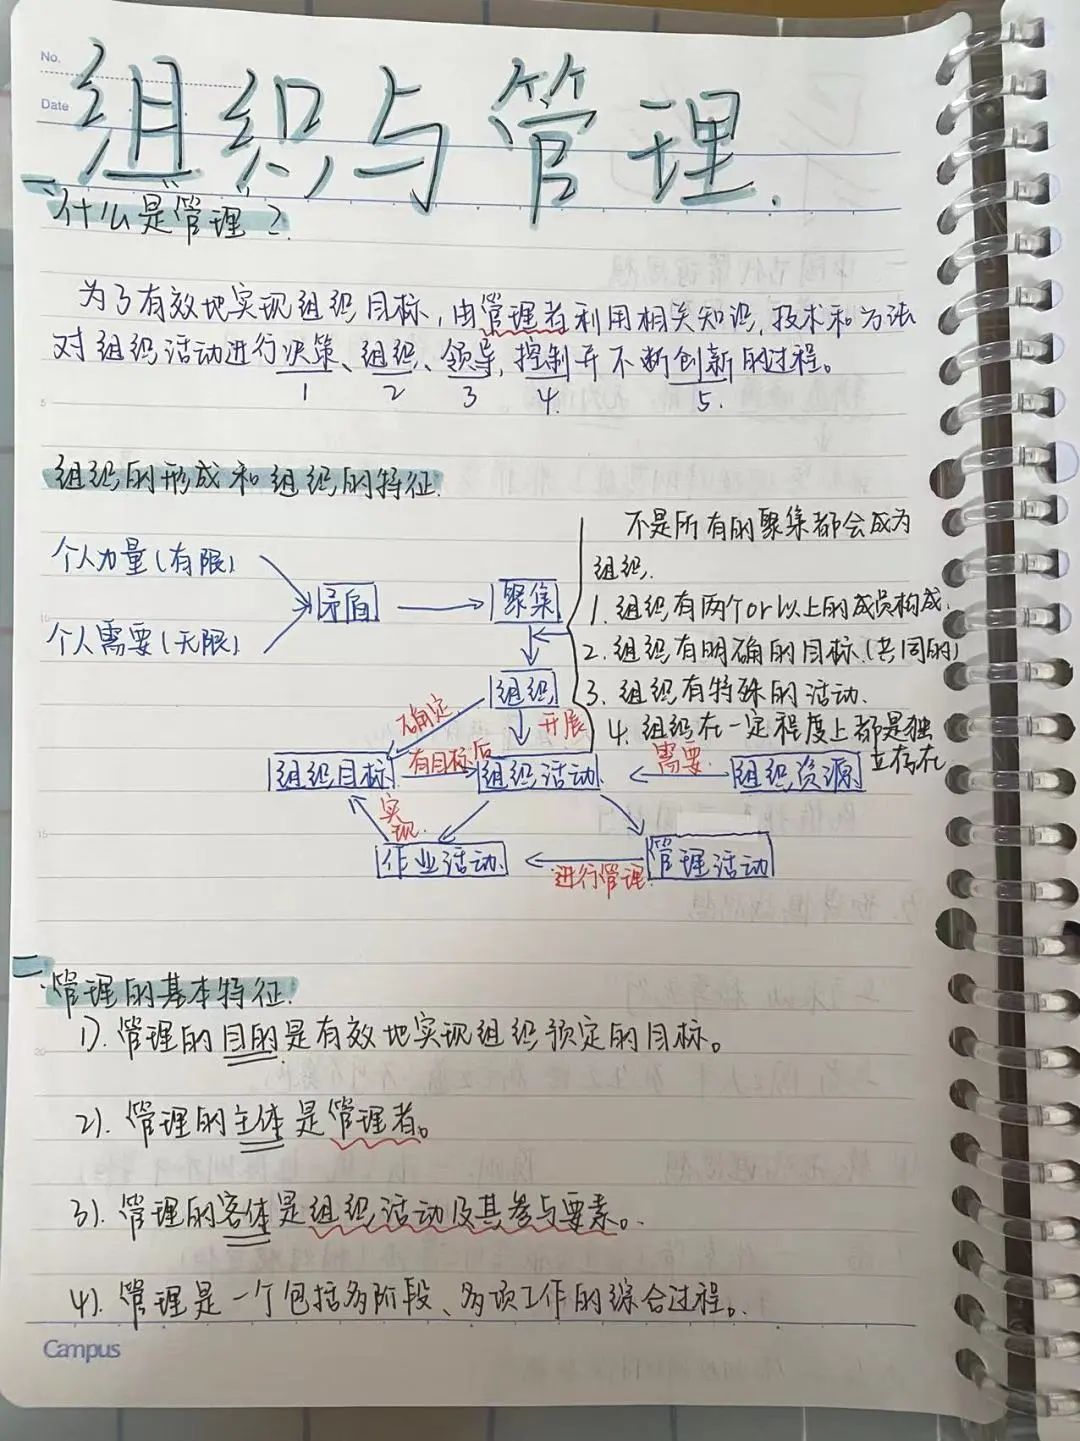 No.
Date
组织与管理.
一、什么是"管理"?
为了有效地实现组织目标,由管理者利用相关知识,技术和方法
对组织活动进行决策、组织、领导,控制并不断创新的过程。
1 2 3 4. 5.
组织的形成和组织的特征.
不是所有的聚集都会成为
组织.
1. 组织有两个or以上的成员构成.
2. 组织有明确的目标.(共同的)
3. 组织有特殊的活动.
4. 组织在一定程度上都是独
立存在
个人力量(有限)
个人需要(无限)
矛盾
聚集
组织
确定
开展
组织目标
有目标后
组织活动
需要
组织资源
实现
作业活动
进行管理
管理活动
二、管理的基本特征.
1). 管理的目的是有效地实现组织预定的目标。
2). 管理的主体是管理者。
3). 管理的客体是组织活动及其参与要素。
4). 管理是一个包括多阶段、多项工作的综合过程。
5
10
15
20
Campus